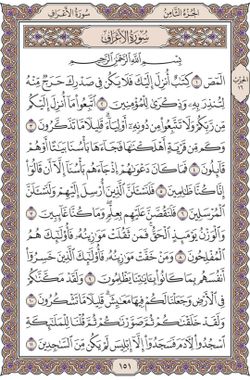 سُورَةُ الأَعْرَافِ
الجُزْءُ الثَّامِنُ
سُورَةُ الأَعْرَافِ
بِسْمِ اللَّهِ الرَّحْمَٰنِ الرَّحِيمِ
الٓمٓصٓ ١ كِتَٰبٌ أُنزِلَ إِلَيْكَ فَلَا يَكُن فِي صَدْرِكَ حَرَجٌ مِّنْهُ
لِتُنذِرَ بِهِۦ وَذِكْرَىٰ لِلْمُؤْمِنِينَ ٢ ٱتَّبِعُوا۟ مَآ أُنزِلَ إِلَيْكُم
مِّن رَّبِّكُمْ وَلَا تَتَّبِعُوا۟ مِن دُونِهِۦٓ أَوْلِيَآءَ ۗ قَلِيلًا مَّا تَذَكَّرُونَ ٣
وَكَم مِّن قَرْيَةٍ أَهْلَكْنَٰهَا فَجَآءَهَا بَأْسُنَا بَيَٰتًا أَوْ هُمْ
قَآئِلُونَ ٤ فَمَا كَانَ دَعْوَىٰهُمْ إِذْ جَآءَهُم بَأْسُنَآ إِلَّآ أَن قَالُوٓا۟
إِنَّا كُنَّا ظَٰلِمِينَ ٥ فَلَنَسْـَٔلَنَّ ٱلَّذِينَ أُرْسِلَ إِلَيْهِمْ وَلَنَسْـَٔلَنَّ
ٱلْمُرْسَلِينَ ٦ فَلَنَقُصَّنَّ عَلَيْهِم بِعِلْمٍ ۖ وَمَا كُنَّا غَآئِبِينَ ٧
وَٱلْوَزْنُ يَوْمَئِذٍ ٱلْحَقُّ ۚ فَمَن ثَقُلَتْ مَوَٰزِينُهُۥ فَأُو۟لَٰٓئِكَ هُمُ
ٱلْمُفْلِحُونَ ٨ وَمَنْ خَفَّتْ مَوَٰزِينُهُۥ فَأُو۟لَٰٓئِكَ ٱلَّذِينَ خَسِرُوٓا۟
أَنفُسَهُم بِمَا كَانُوا۟ بِـَٔايَٰتِنَا يَظْلِمُونَ ٩ وَلَقَدْ مَكَّنَّٰكُمْ
فِي ٱلْأَرْضِ وَجَعَلْنَا لَكُمْ فِيهَا مَعَٰيِشَ ۗ قَلِيلًا مَّا تَشْكُرُونَ ١٠
وَلَقَدْ خَلَقْنَٰكُمْ ثُمَّ صَوَّرْنَٰكُمْ ثُمَّ قُلْنَا لِلْمَلَٰٓئِكَةِ
ٱسْجُدُوا۟ لِءَادَمَ فَسَجَدُوٓا۟ إِلَّآ إِبْلِيسَ لَمْ يَكُن مِّنَ ٱلسَّٰجِدِينَ ١١
١٥١